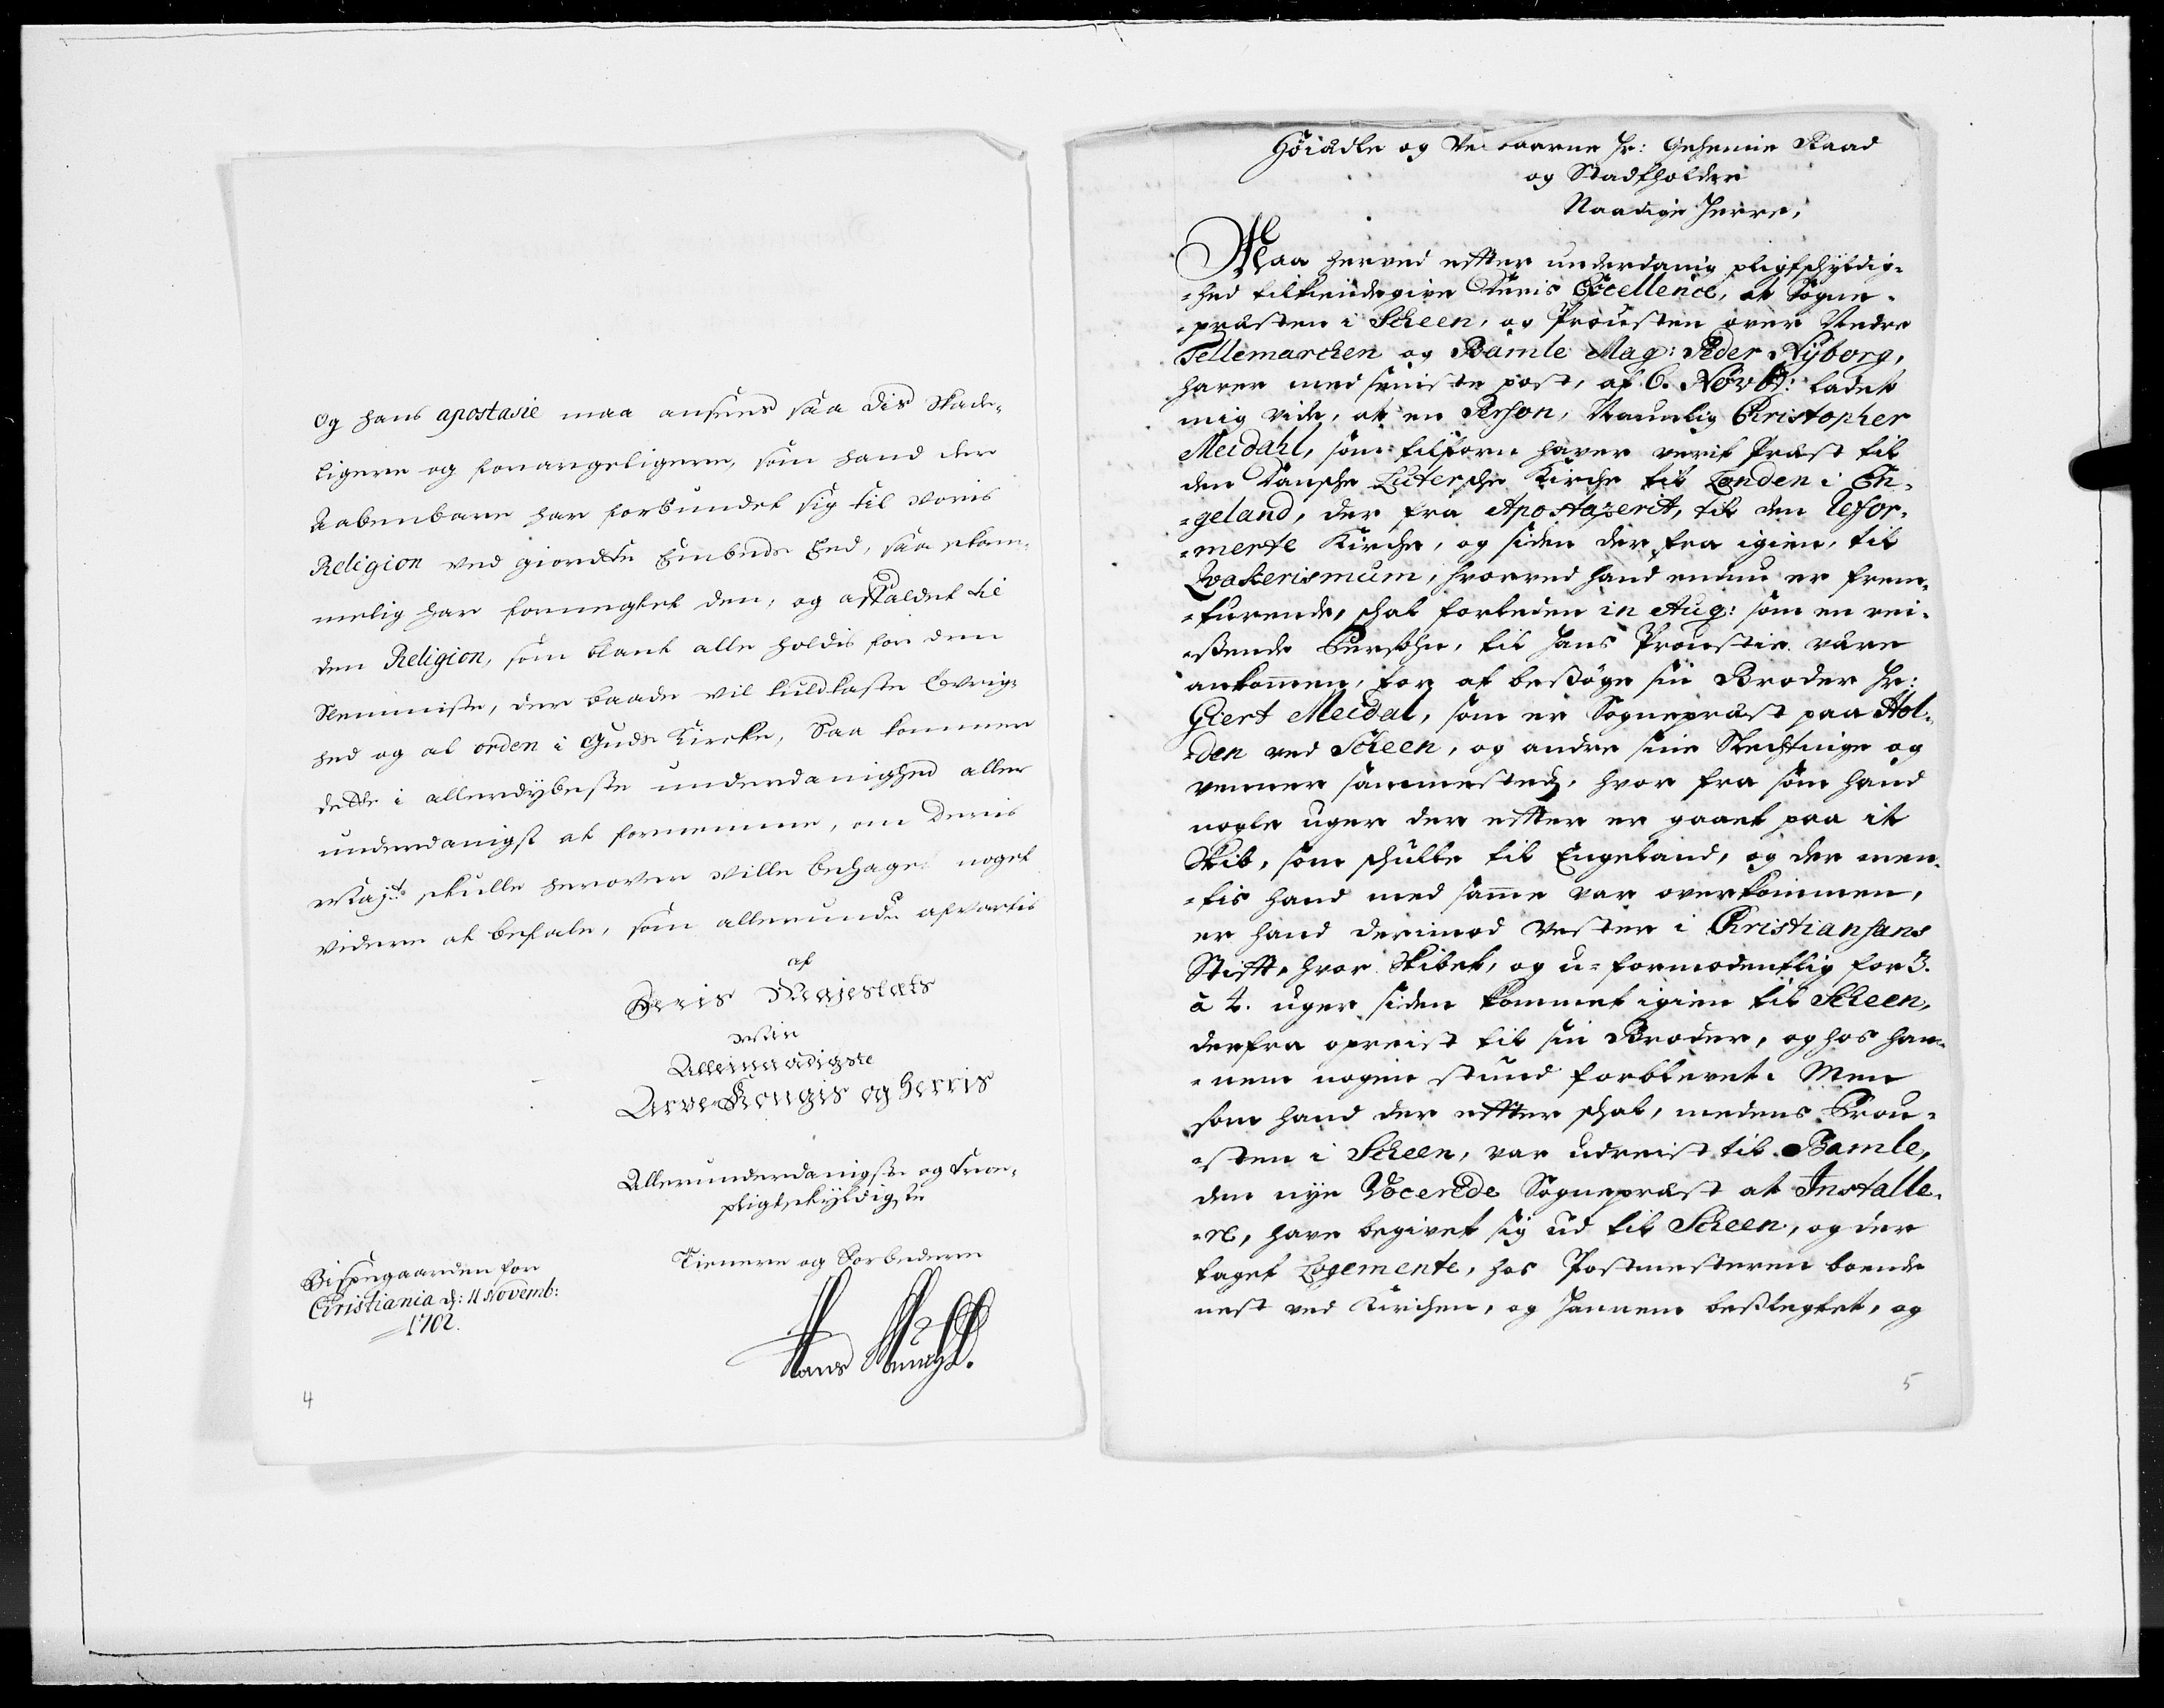 Og hans apostasie maa ansees saa dis skade-
ligere og forargeligere, som hand der
Aabenbare har forbundet sig til voris
Religion ved giordte Embeds Eed, saa skam-
melig har fornegtet den, og affaldet til
den Religion, som blant alle holdis for den
slemmiste, der baade vil kuldkaste Øvrig-
hed og al orden i Guds Kircke, Saa kommer
dette i allerdybeste underdanighed aller
underdanigst at fornemme, om Deris
Mayts skulle herover ville behage noget
videre at befale, som allerundst afvartis
af
Deris Majestæts
Min
Allernaadigste
Arve-Kongis og Herris
Allerunderdanigste og troe-
pligtskyldigste
Tienere og Forbedere
Hans Munch
Bispegaarden for
Christiania d: 11 Novemb:
1702.
4
Höiædle og Velbaarne Hr: Geheime Raad
og Stadtholder
Naadige Herre,
Maa herved efter underdanig pligtschyldig-
=hed tilkiendegive Deris Excellence, at Sogne-
=præsten i Scheen, og Prousten over Nedre
Tellemarchen og Bamle Mag: Peder Nyborg,
haver med seniste post, af 6. Novbr: ladet
mig vide, at en Person, Naunlig Christopher
Meidahl, som tilforn haver verit Præst til
den Dansche Lutersche Kirche til Londen i En-
=geland, der fra Apostazerit, til den Refor-
=merte Kirche, og siden der fra igien, til
Qvakerismum, hvorved hand endnu er frem-
=turende, schal forleden in Aug: som en rei-
=ßende Persohn, til hans Proustie være
ankommen, for at beßøge sin Broder Hr:
Giert Meidal, som er Sognepræst paa Hol-
=den ved Scheen, og andre sine Slechtninge og
venner sammesteds, hvor fra som hand
nogle uger der efter er gaaet paa it
Skib, som schulle til Engeland, og der men-
=tis hand med samme var overkommen,
er hand derimod Vester i Christiansans
Stifft, hvor Skibet, og u=formodentlig for 3.
à 4. uger siden kommet igien til Scheen,
derfra opreist til sin Broder, og hos han-
=nem nogen stund forblevet. Men
som hand der effter schal, medens Prou-
=sten i Scheen, var udreist til Bamle,
den nye Vocerede Sognepræst at Installe-
=re, have begivet sig ud til Scheen, og der
taget Logemente, hos Postmesteren boende
nest ved Kirchen, og hannem beslegtet, og
5